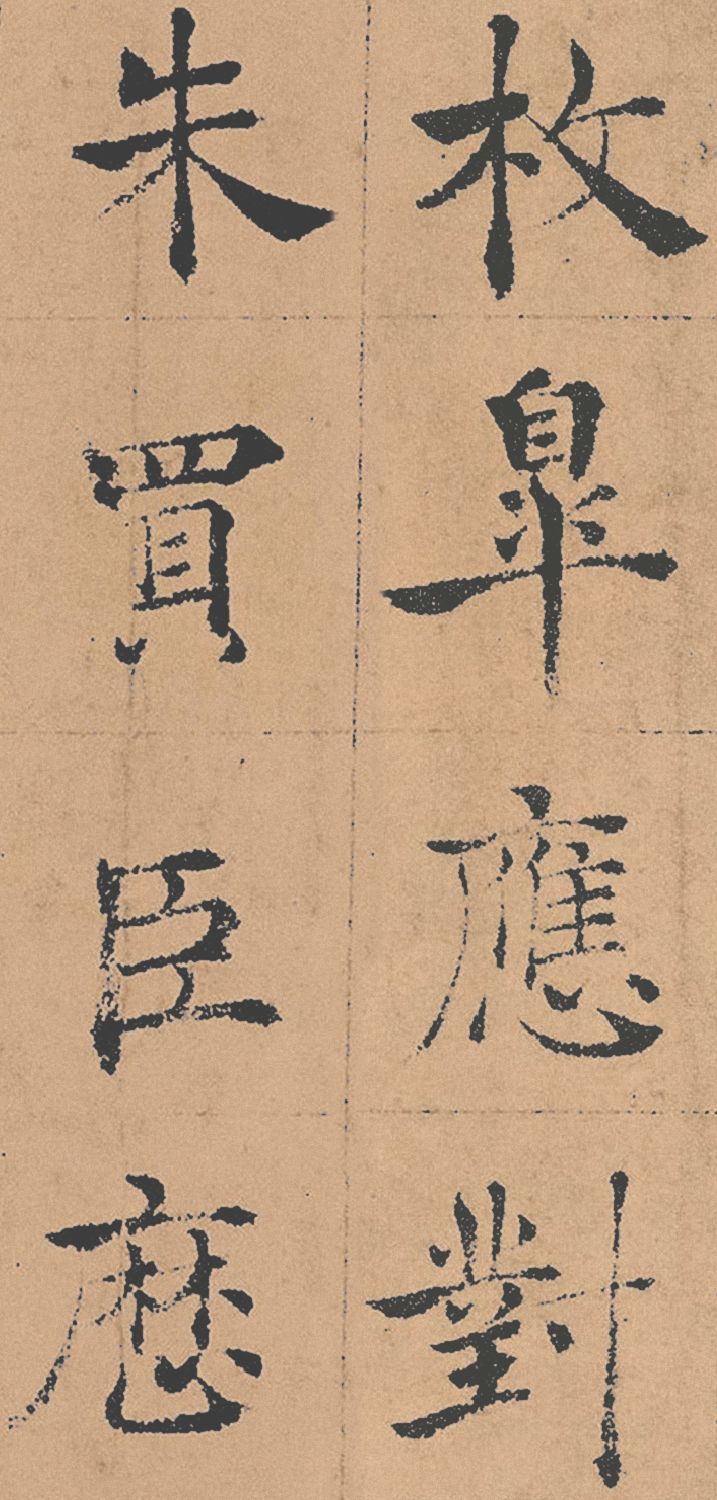 枚臯應對
朱買臣歷